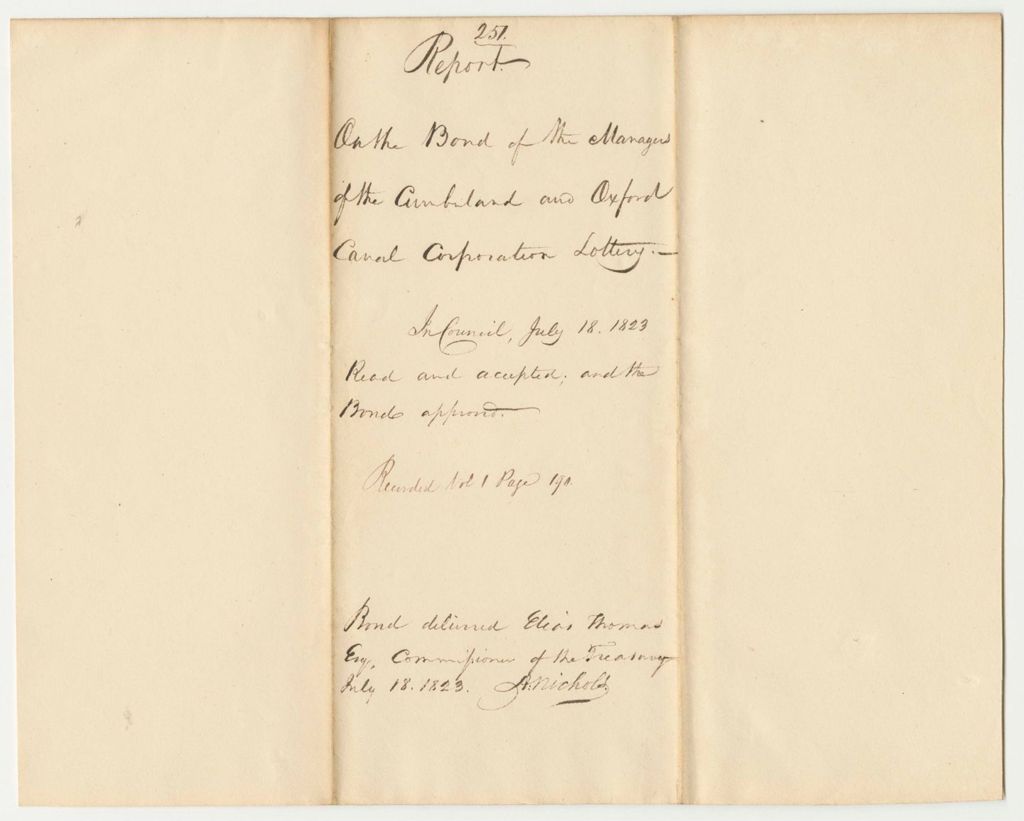 251.
Report.
On the Bond of the Managers
of the Cumberland and Oxford
Canal Corporation Lottery.—
In Council, July 18. 1823
Read and accepted; and the
Bond approved.
Recorded Vol 1 Page
Bond delivered Elias Thomas
Esq, Commissioner of the Treasury
July 18. 1823. Nichols